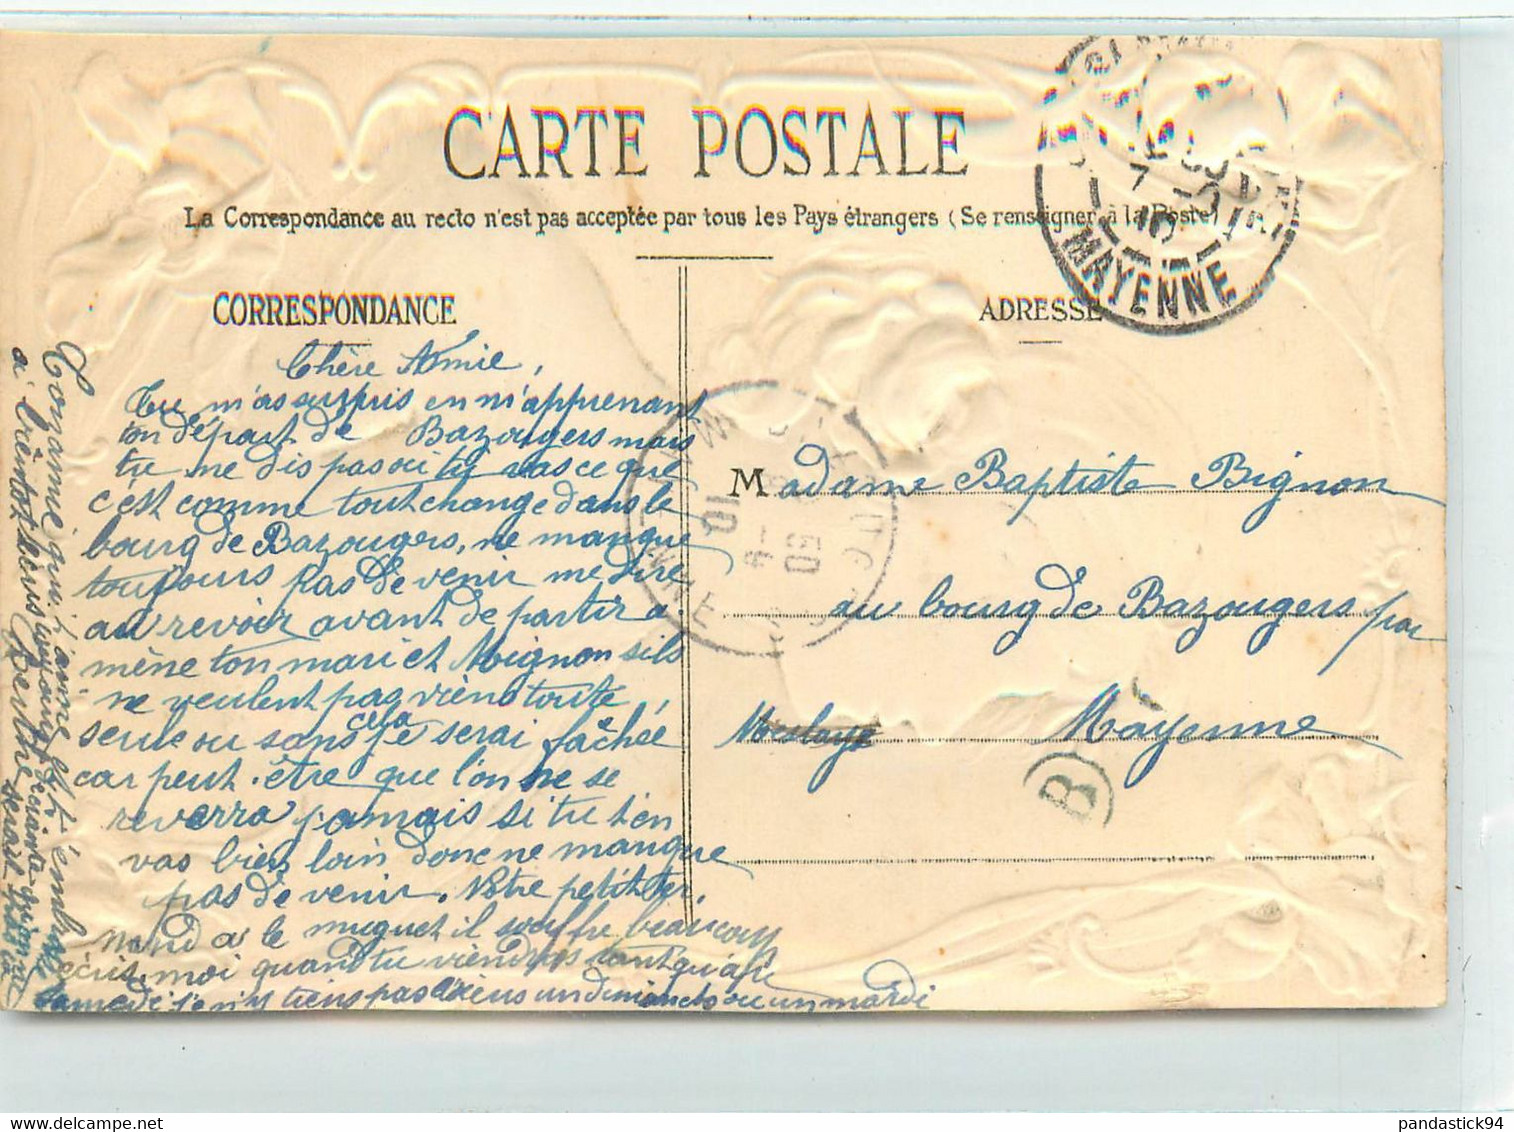 CARTE POSTALE
La Correspondance au recto n'est pas acceptée par tous les Pays étrangers (Se renseigner à la Poste)
CORRESPONDANCE
ADRESSE
MAYENNE
10
Chère Amie,
Tu m'as surpris en m'apprenant
ton départ de Bazougers mais
tu me dis pas où tu vas ce que
c'est comme tout change dans le
bourg de Bazougers, ne manque
toujours pas de venir me dire
au revoir avant de partir a
mène ton mari et Mignon sils
ne veulent pas viens toute
seule ou sans cela je serai fachée
car peut-être que l'on ne se
reverra jamais si tu t'en
vas bien loin donc ne manque
pas de venir. Notre petit Fer,
nand a le muguet il souffre beaucoup
écris moi quand tu viendras
samedi je n'y tiens pas viens un dimanche ou un mardi
Ton amie qui t'aime et t'embrasse
à bientôt
Berthe
Madame Baptiste Bignon
au bourg de Bazougers par
Meslaye Mayenne
B
pandastick94